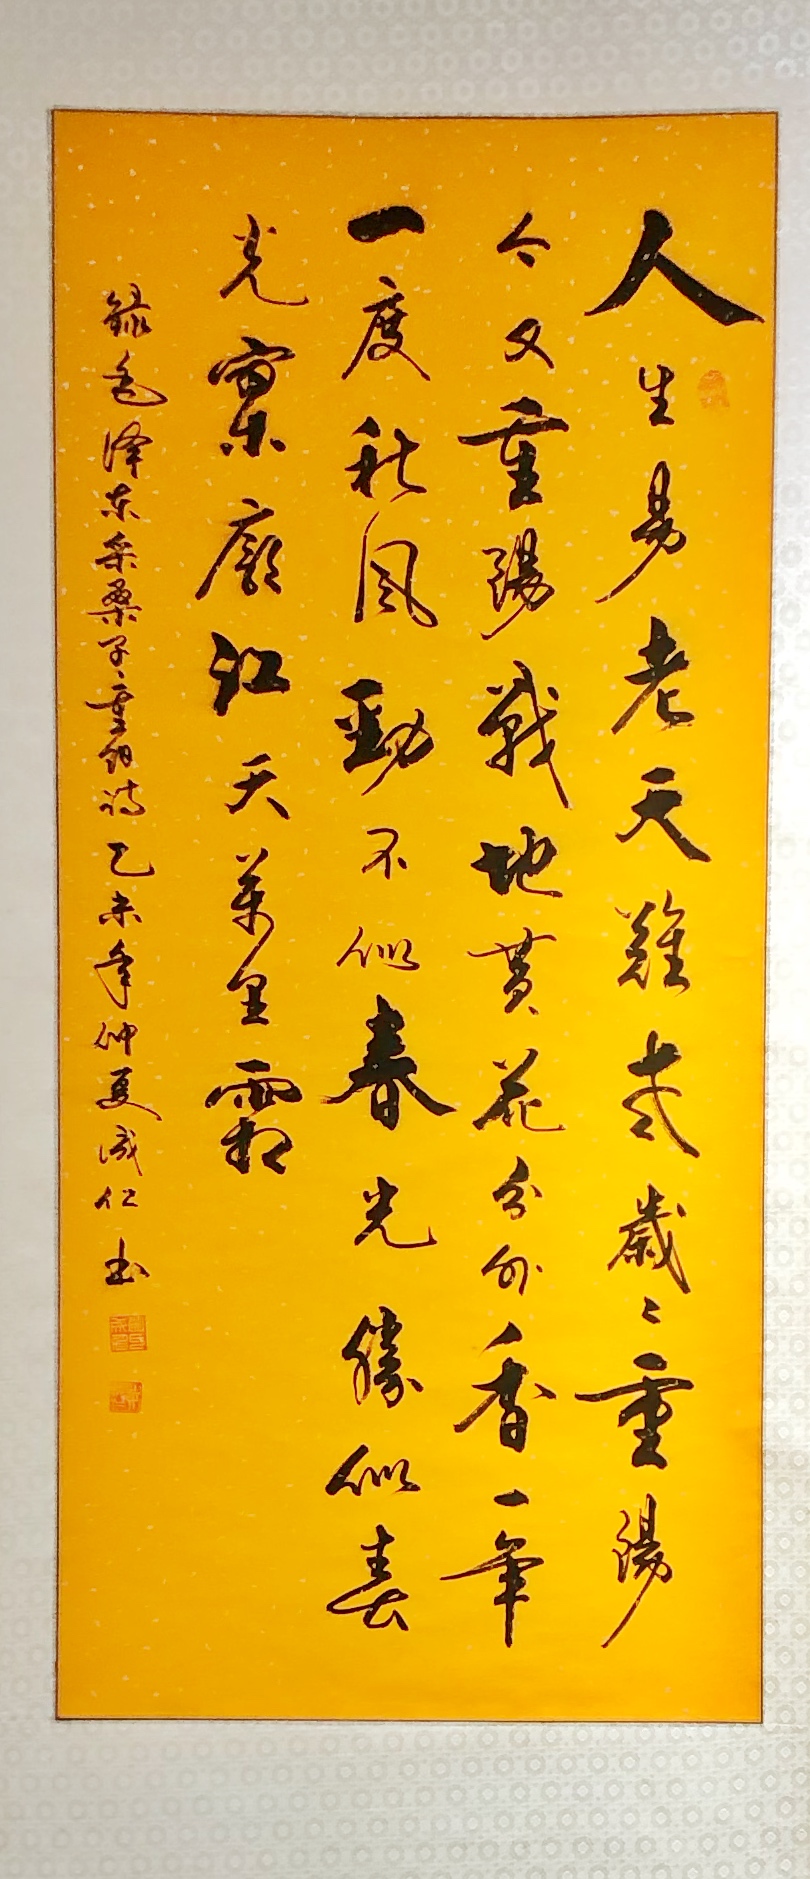 人生易老天難老歲〻重陽
今又重陽戰地黄花分外香一年
一度秋風勁不似春光勝似春
光寥廓江天萬里霜
錄毛泽东采桑子重阳詩乙未年仲夏成仁书